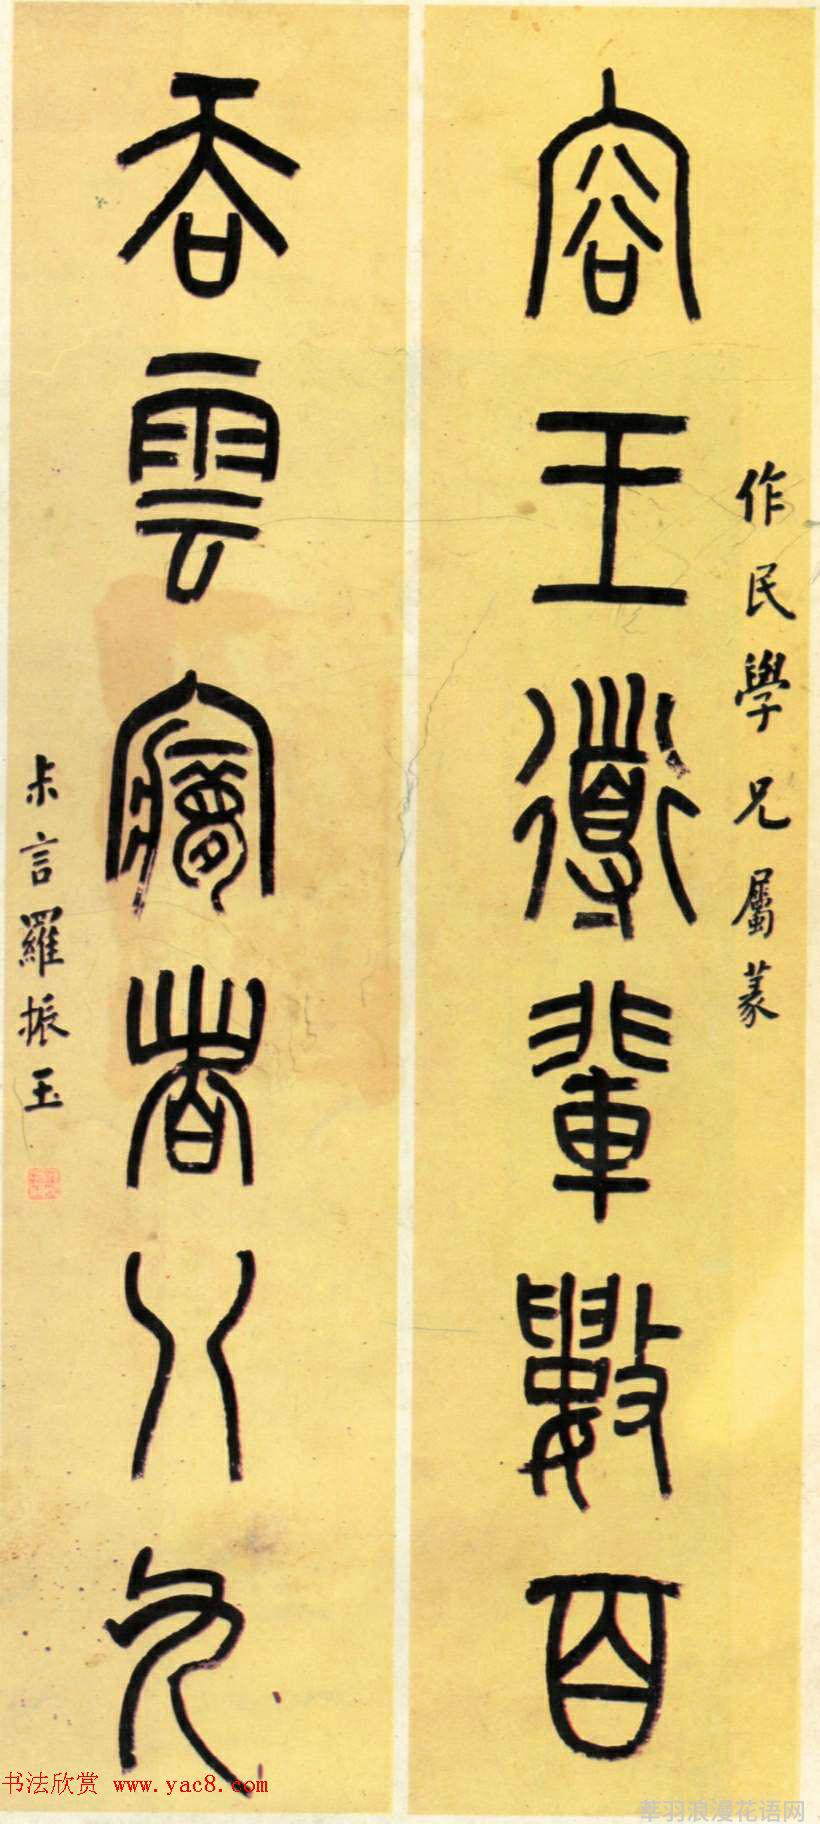 作民學兄屬篆
容王導輩數百
吞雲夢者八九
尗言羅振玉
书法欣赏 www.yac8.com
莘羽浪漫花语网